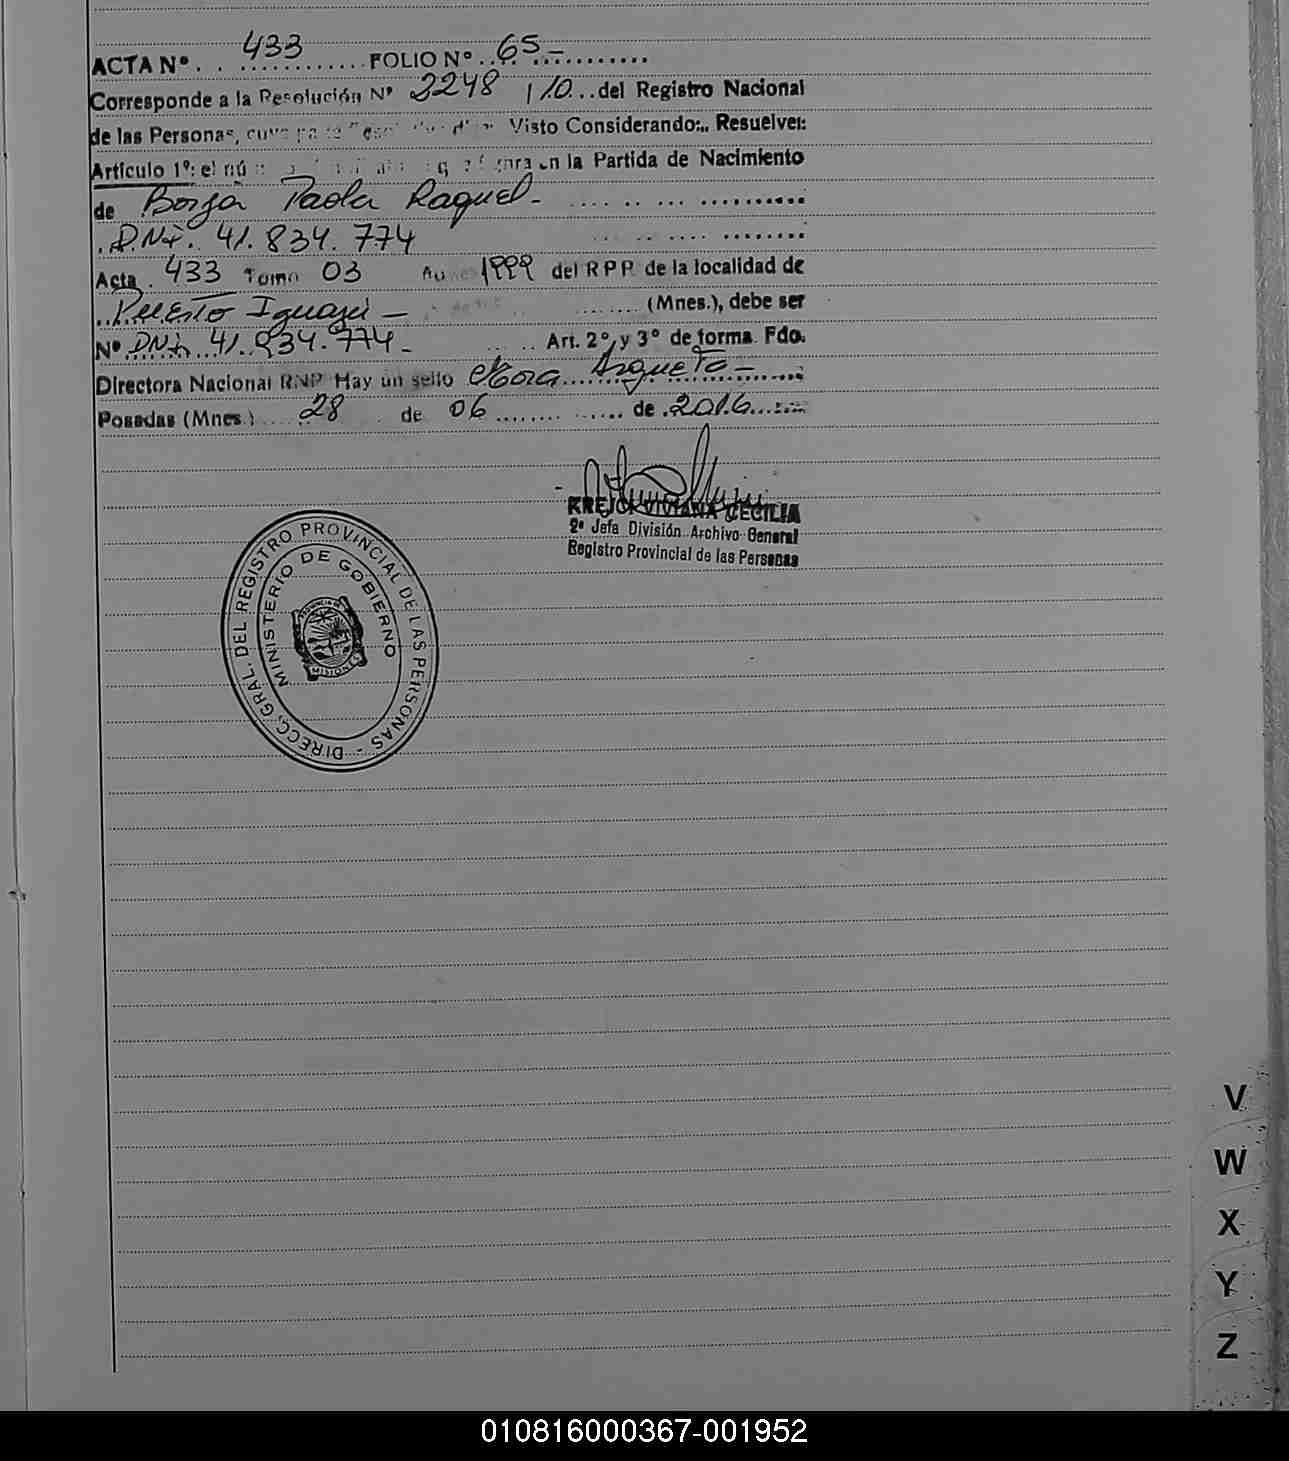 ACTA Nº 433 FOLIO Nº 65-
Corresponde a la Resolución Nº 2248 /10 del Registro Nacional
de las Personas, cuya parte Visto Considerando:.. Resuelve:
Artículo 1º: el figura en la Partida de Nacimiento
de Borja Paola Raquel-
D.N.I. 41.834.774
Acta 433 Tomo 03 1999 del R P P. de la localidad de
Puerto Iguazú - (Mnes.), debe ser
Nº DNI. 41.834.774- Art. 2º y 3º de forma. Fdo.
Directora Nacional RNP Hay un sello Mora Arqueta-
Posadas (Mnes.) 28 de 06 de 2016
KREJCI VIVIANA CECILIA
2º Jefa División Archivo General
Registro Provincial de las Personas
DIRECC. GRAL. DEL REGISTRO PROVINCIAL DE LAS PERSONAS -
MINISTERIO DE GOBIERNO
PROVINCIA DE
MISIONES
V
W
X
Y
Z
010816000367-001952